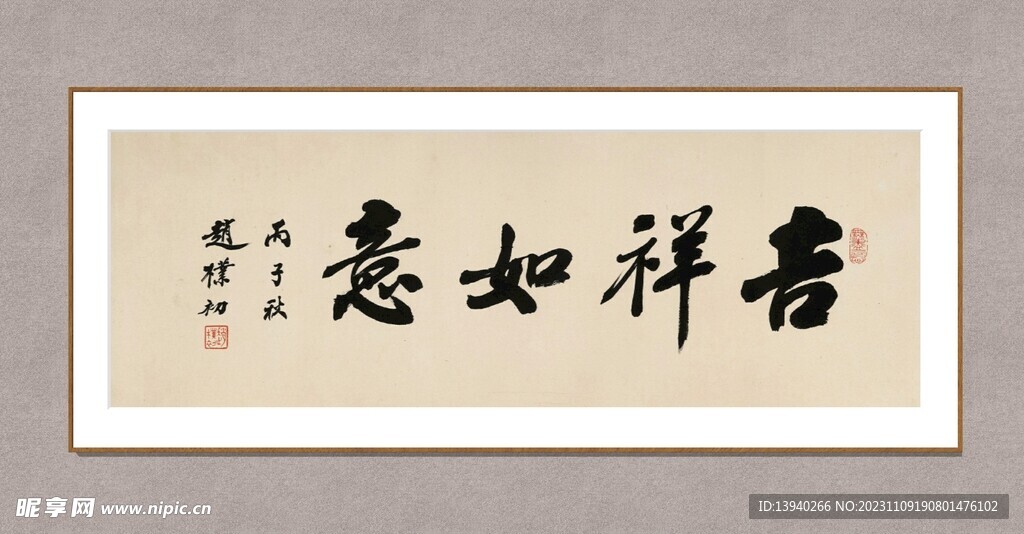 吉祥如意
丙子秋
趙樸初
昵享网 www.nipic.cn
ID:13940266 NO:20231109190801476102